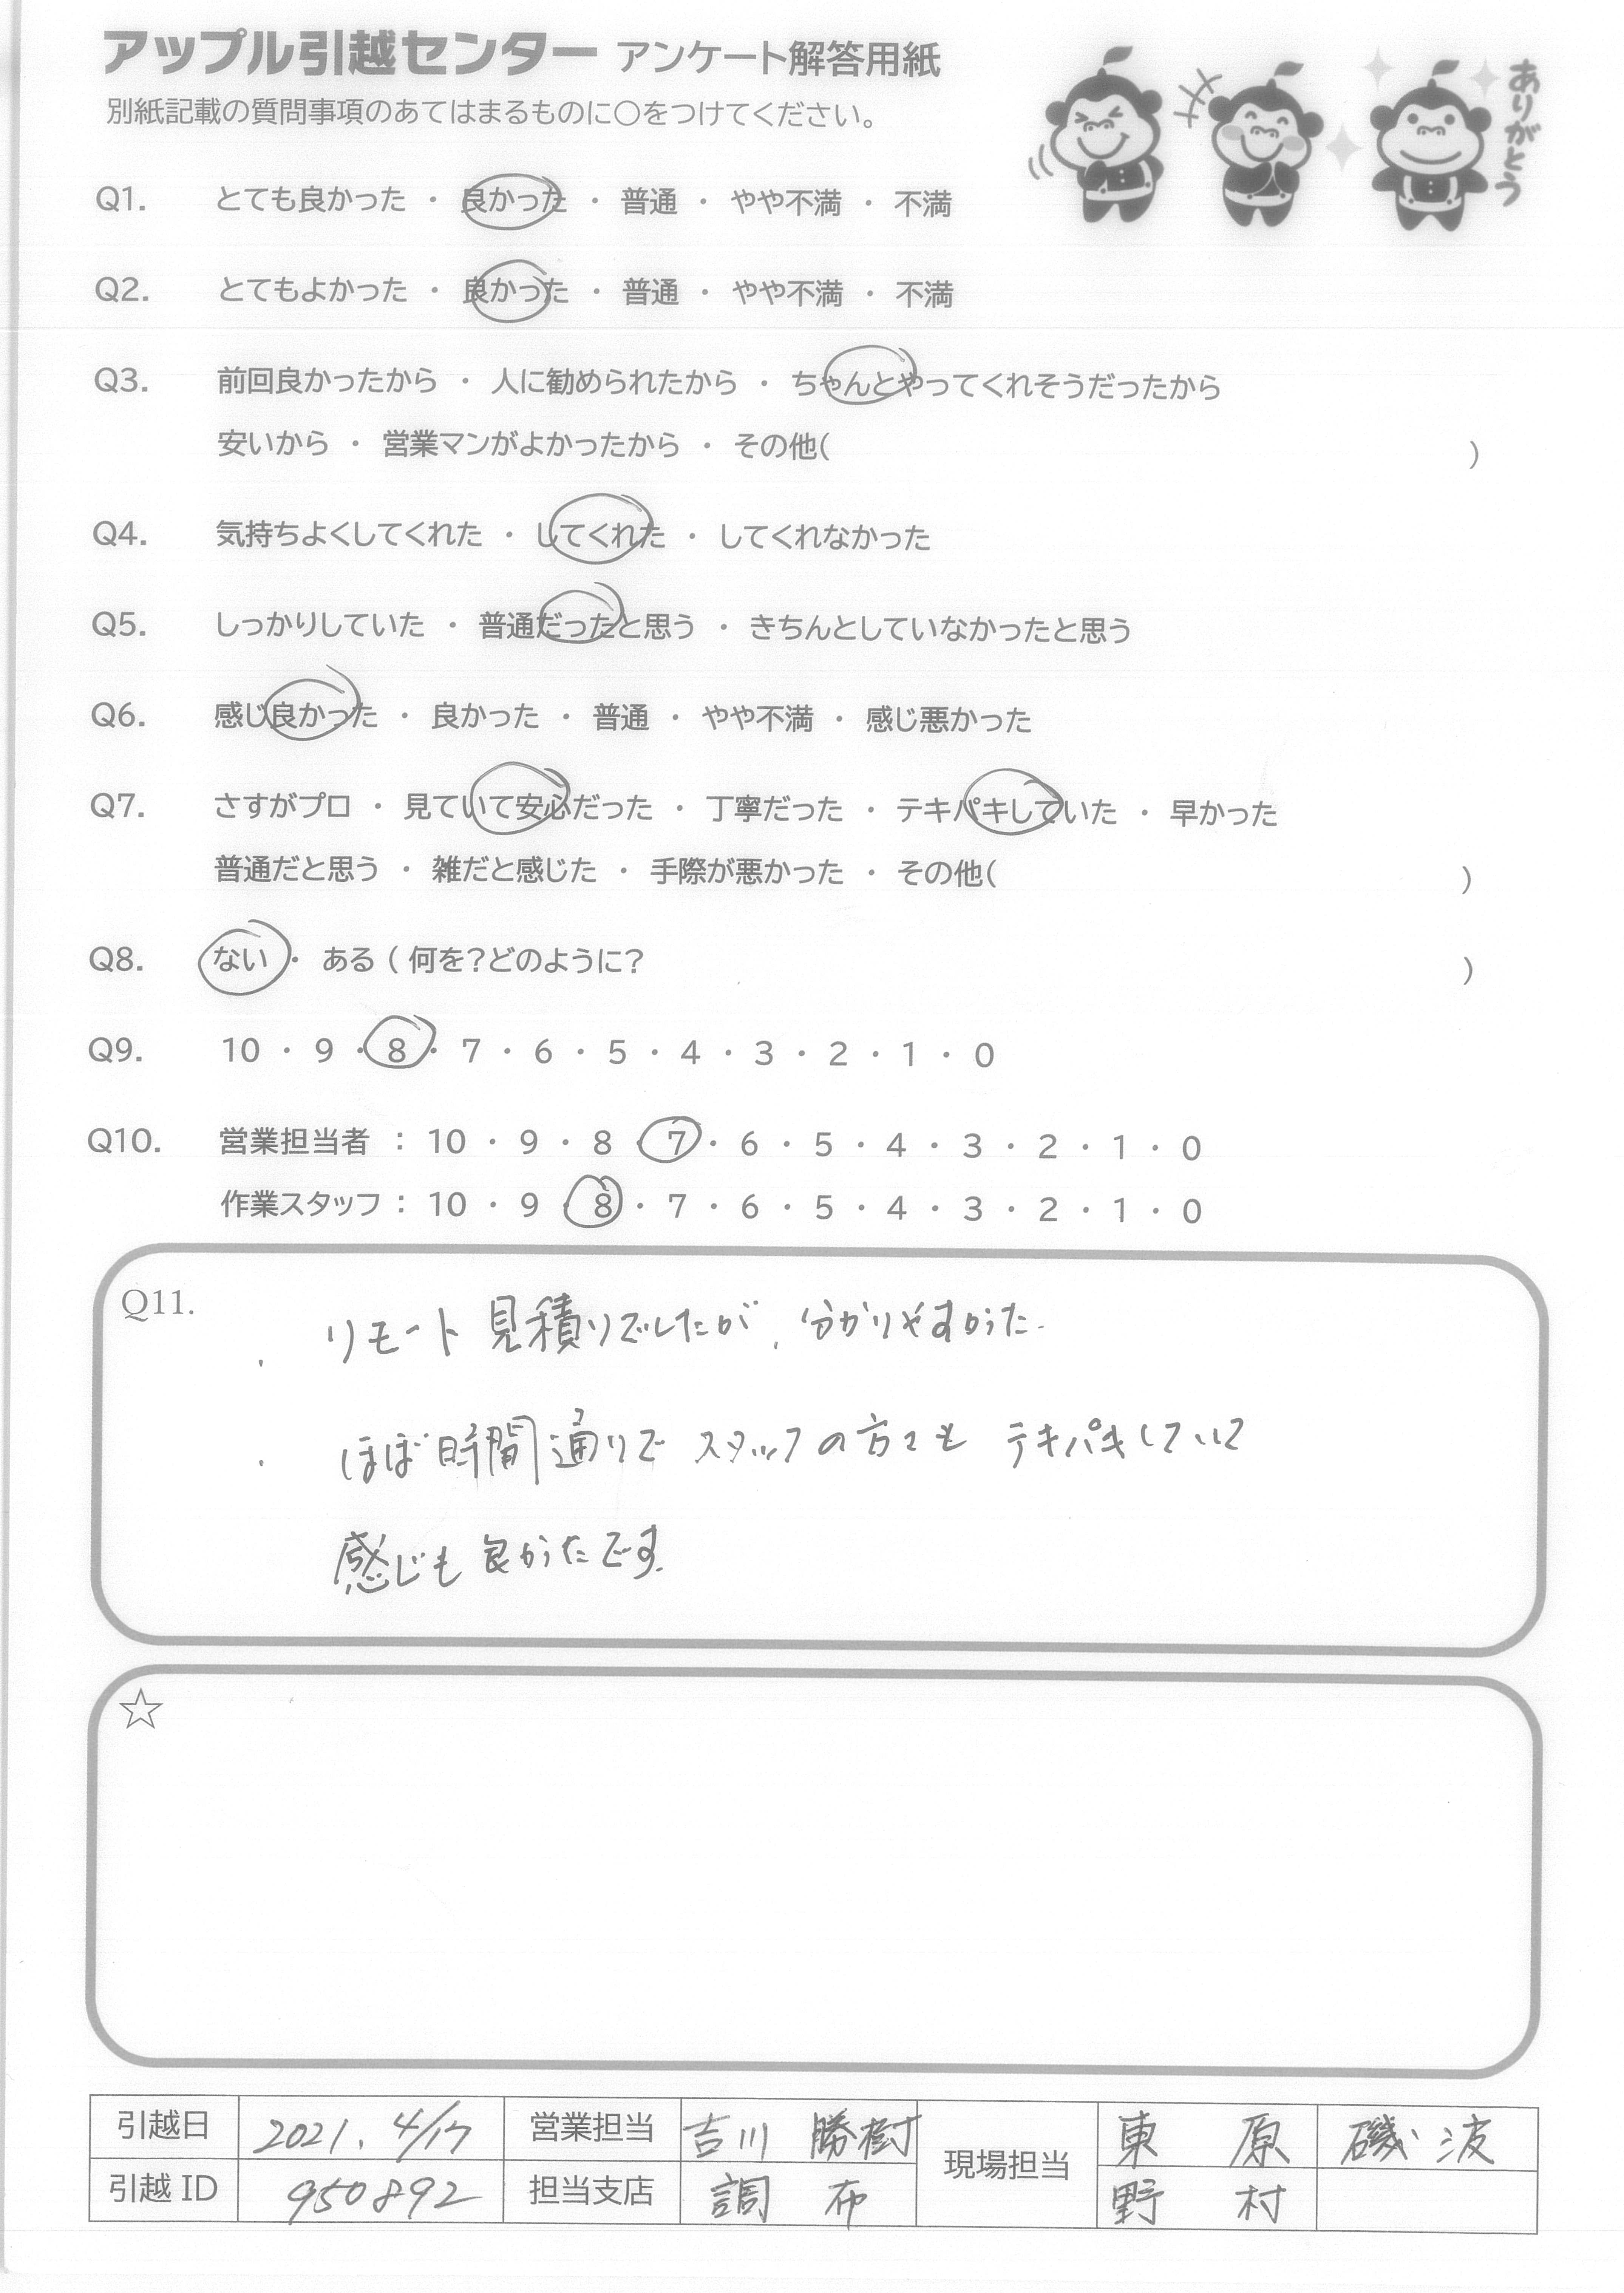 アップル引越センター アンケート解答用紙
別紙記載の質問事項のあてはまるものに○をつけてください。
ありがとう
Q1. とても良かった ・ 良かった ・ 普通 ・ やや不満 ・ 不満
Q2. とてもよかった ・ 良かった ・ 普通 ・ やや不満 ・ 不満
Q3. 前回良かったから ・ 人に勧められたから ・ ちゃんとやってくれそうだったから
安いから ・ 営業マンがよかったから ・ その他( )
Q4. 気持ちよくしてくれた ・ してくれた ・ してくれなかった
Q5. しっかりしていた ・ 普通だったと思う ・ きちんとしていなかったと思う
Q6. 感じ良かった ・ 良かった ・ 普通 ・ やや不満 ・ 感じ悪かった
Q7. さすがプロ ・ 見ていて安心だった ・ 丁寧だった ・ テキパキしていた ・ 早かった
普通だと思う ・ 雑だと感じた ・ 手際が悪かった ・ その他( )
Q8. ない ・ ある ( 何を?どのように? )
Q9. 10 ・ 9 ・ 8 ・ 7 ・ 6 ・ 5 ・ 4 ・ 3 ・ 2 ・ 1 ・ 0
Q10. 営業担当者 : 10 ・ 9 ・ 8 ・ 7 ・ 6 ・ 5 ・ 4 ・ 3 ・ 2 ・ 1 ・ 0
作業スタッフ : 10 ・ 9 ・ 8 ・ 7 ・ 6 ・ 5 ・ 4 ・ 3 ・ 2 ・ 1 ・ 0
Q11.
・ リモート見積りでしたが、分かりやすかった.
・ ほぼ時間通りで スタッフの方々も テキパキしていて
感じも良かったです.
☆
引越日 2021. 4/17 営業担当 吉川 勝樹 現場担当 東 原 磯 波
引越 ID 950892 担当支店 調 布 野 村